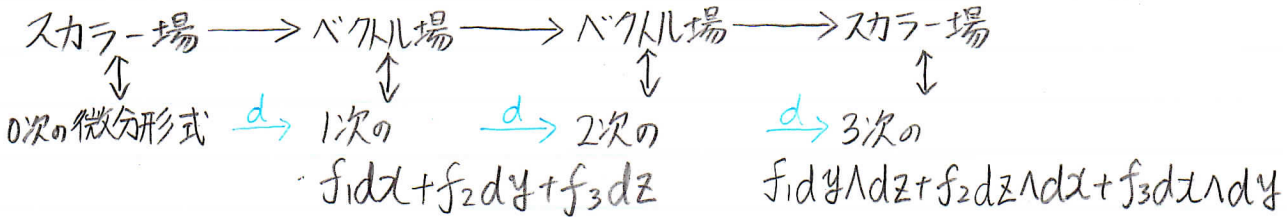 スカラー場 → ベクトル場 → ベクトル場 → スカラー場
↕ ↕ ↕ ↕
0次の微分形式 d→ 1次の d→ 2次の d→ 3次の
f₁dx+f₂dy+f₃dz f₁dy∧dz+f₂dz∧dx+f₃dx∧dy